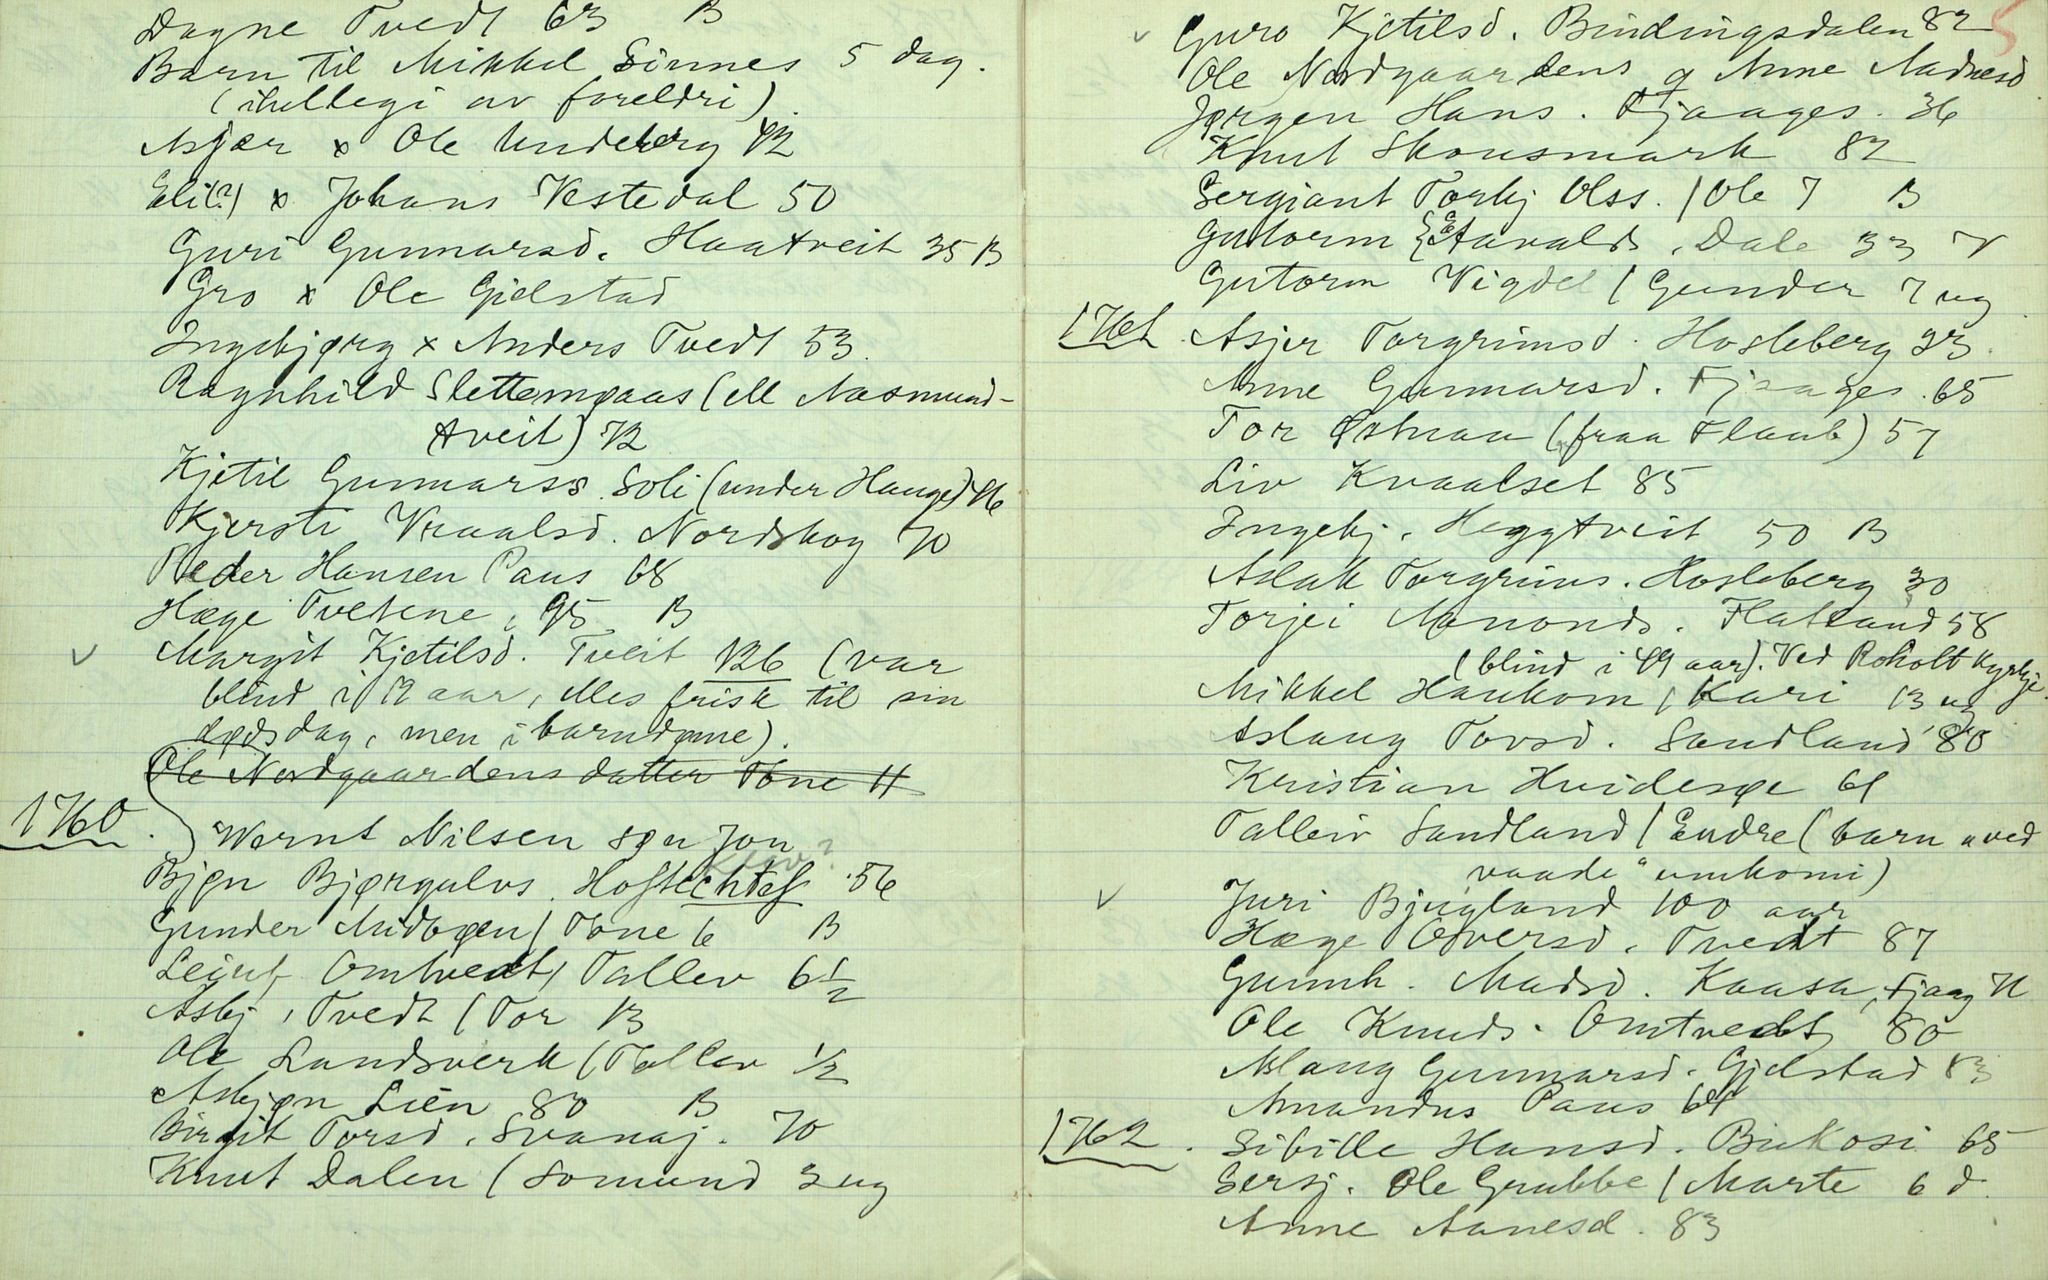 Dagne Tvedt 63 B
Barn til Mikkel Sinnes 5 dag.
(ihellegi av foreldri)
Asjær x Ole Underberg 42
Eli(?) x Johans Vestedal 50
Guri Gunnarsd. Haatveit 35 B
Gro x Ole Gjelstad
Ingebjørg x Anders Tvedt 53
Ragnhild Slettemoaas (ell Aasmund-
tveit) 72
Kjetil Gunnarss. Soli (under Hauge) 76
Kjersti Vraalsd. Nordskog 70
Peder Hansen Paus 68
Hæge Tvetene, 95 B
Margit Kjetilsd. Tveit 126 (var
blind i 12 aar, elles frisk til sin
dødsdag, men i barndome).
Ole Nordgaardens datter Tone 11
1760. Wernt Nilsen søn Jon
Bjøn Bjørgulvs. Hofte 56
Gunder Midbøen / Tone 6 B
Leiulf Omtvedt / Tallev 6 1/2
Asbj. Tvedt / Tor 13
Ole Landsverk / Tallev 1/2
Asbjøn Lien 80 B
Birgit Torsd. Svanaj. 70
Knut Dalen / Somund 3 ug
Guro Kjetilsd. Bindingsdalen 82 5
Ole Nordgaardens og Anne Aadnesd
Jørgen Hans. Fjaages. 36
Knut Skousmark 82
Sergiant Torbj Olss. / Ole 7 B
Gutorm Aavalds. Dale 33
Gutorm Vigdel / Gunder 7 ug
1761. Asjer Torgrimsd. Hosleberg 23
Anne Gunnarsd. Fjaages. 65
Tor Østuaa (fraa Flaub) 57
Liv Kvaalset 85
Ingebj. Heggtveit 50 B
Aslak Torgrims. Hosleberg 30
Torjei Amonds. Flatland 58
(blind i 49 aar). Ved Roholt kyrkje.
Mikkel Haukom / Kari 13 ug
Aslaug Tovsd. Sandland 80
Kristian Hvidesøe 61
Talleiv Sandland / Endre (barn "ved
vaade" umkomi)
Juri Bjugland 100 aar
Hæge Olversd. Tvedt 87
Gunnh. Madsd. Kaasa, Fjaag 71
Ole Knuds. Omtvedt 80
Aslaug Gunnarsd. Gjelstad 83
Amandus Paus 61
1762. Sibille Hansd. Biskosi 65
Sersj. Ole Grubbe / Marte 6 d.
Anne Aanesd. 83